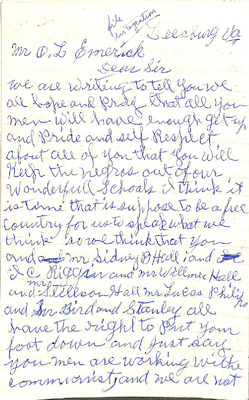 file
integration
Leesburg Va
Mr O. L Emerick
Dear Sir
we are writing to tell you we
all hope and Pray that all you
men will have enough get up
and Pride and self Respect
about all of you that you will
Keep the negros out of our
Wonderfull Schools I think it
is time that is suppose to be a free
Country for us to speak what we
think so we think that you
and mr Sidney D Hall and
J C Riggin and mr Wilmer Hall
and mr Stilson Hall mr Lucas Philips
and Sir Bird and Stanley all
have the right to Put your
foot down and Just say
you men are working withe
communist, and we are not